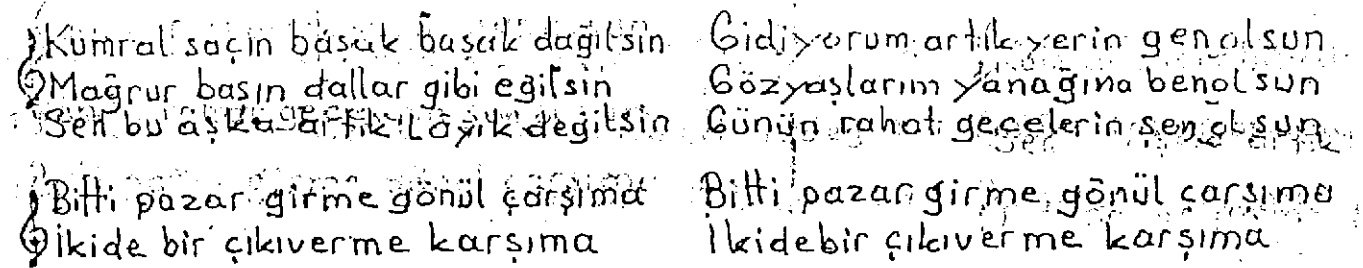 Kumral saçın başak başak dağılsın
Mağrur basın dallar gibi eğilsin
Sen bu aşka artık Lâyık değilsin
Bitti pazar girme gönül çarşıma
İkide bir çıkıverme karşıma
Gidiyorum artık yerin gen olsun
Gözyaşlarım yanağına benolsun
Günün rahat gecelerin şen olsun
Bitti pazar girme gönül çarşıma
İkidebir çıkıverme karşıma